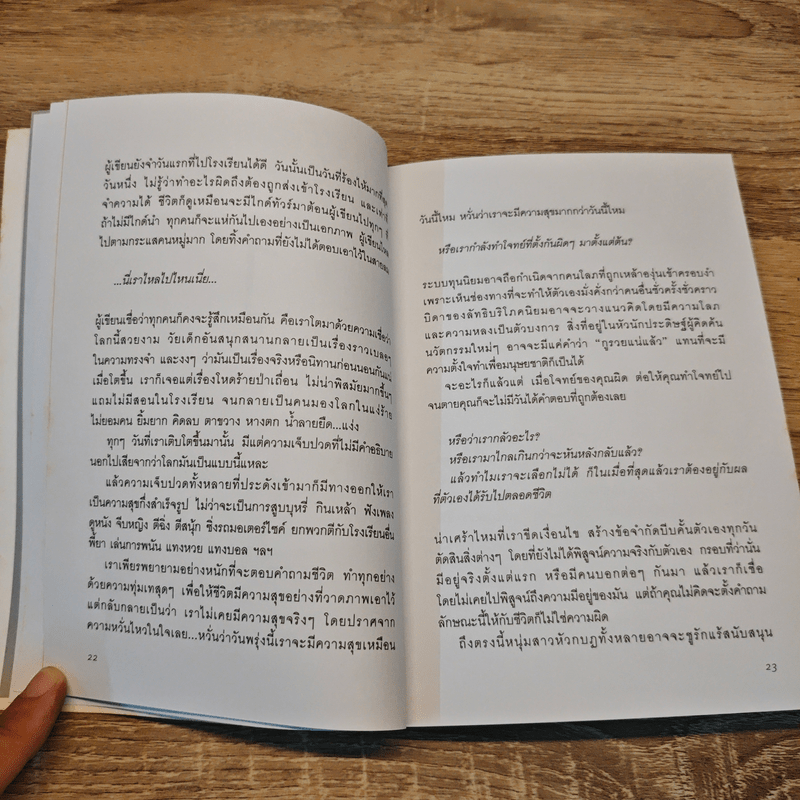 ผู้เขียนยังจำวันแรกที่ไปโรงเรียนได้ดี วันนั้นเป็นวันที่ร้องไห้มากที่สุด
วันหนึ่ง ไม่รู้ว่าทำอะไรผิดถึงต้องถูกส่งเข้าโรงเรียน และเท่าที่
จำความได้ ชีวิตก็ดูเหมือนจะมีไกด์ทัวร์มาต้อนผู้เขียนไปทุกๆ ที่
ถ้าไม่มีไกด์นำ ทุกคนก็จะแห่กันไปเองอย่างเป็นเอกภาพ ผู้เขียนไหล
ไปตามกระแสคนหมู่มาก โดยทิ้งคำถามที่ยังไม่ได้ตอบเอาไว้ในสายลม
...นี่เราไหลไปไหนเนี่ย...
ผู้เขียนเชื่อว่าทุกคนก็คงจะรู้สึกเหมือนกัน คือเราโตมาด้วยความเชื่อว่า
โลกนี้สวยงาม วัยเด็กอันสนุกสนานกลายเป็นเรื่องราวเบลอๆ
ในความทรงจำ และงงๆ ว่ามันเป็นเรื่องจริงหรือนิทานก่อนนอนกันแน่
เมื่อโตขึ้น เราก็เจอแต่เรื่องโหดร้ายป่าเถื่อน ไม่น่าพิสมัยมากขึ้นๆ
แถมไม่มีสอนในโรงเรียน จนกลายเป็นคนมองโลกในแง่ร้าย
ไม่ยอมคน ยิ้มยาก คิดลบ ตาขวาง หางตก น้ำลายยืด...แง่ง
ทุกๆ วันที่เราเติบโตขึ้นมานั้น มีแต่ความเจ็บปวดที่ไม่มีคำอธิบาย
นอกไปเสียจากว่าโลกมันเป็นแบบนี้แหละ
แล้วความเจ็บปวดทั้งหลายที่ประดังเข้ามาก็มีทางออกให้เรา
เป็นความสุขกึ่งสำเร็จรูป ไม่ว่าจะเป็นการสูบบุหรี่ กินเหล้า ฟังเพลง
ดูหนัง จีบหญิง ตีฉิ่ง ตีสนุ้ก ซิ่งรถมอเตอร์ไซค์ ยกพวกตีกับโรงเรียนอื่น
พี้ยา เล่นการพนัน แทงหวย แทงบอล ฯลฯ
เราเพียรพยายามอย่างหนักที่จะตอบคำถามชีวิต ทำทุกอย่าง
ด้วยความทุ่มเทสุดๆ เพื่อให้ชีวิตมีความสุขอย่างที่วาดภาพเอาไว้
แต่กลับกลายเป็นว่า เราไม่เคยมีความสุขจริงๆ โดยปราศจาก
ความหวั่นไหวในใจเลย...หวั่นว่าวันพรุ่งนี้เราจะมีความสุขเหมือน
22
วันนี้ไหม หวั่นว่าเราจะมีความสุขมากกว่าวันนี้ไหม
หรือเรากำลังทำโจทย์ที่ตั้งกันผิดๆ มาตั้งแต่ต้น?
ระบบทุนนิยมอาจถือกำเนิดจากคนโลภที่ถูกเหล้าองุ่นเข้าครอบงำ
เพราะเห็นช่องทางที่จะทำให้ตัวเองมั่งคั่งกว่าคนอื่นชั่วครั้งชั่วคราว
บิดาของลัทธิบริโภคนิยมอาจจะวางแนวคิดโดยมีความโลภ
และความหลงเป็นตัวบงการ สิ่งที่อยู่ในหัวนักประดิษฐ์ผู้คิดค้น
นวัตกรรมใหม่ๆ อาจจะมีแค่คำว่า “กูรวยแน่แล้ว” แทนที่จะมี
ความตั้งใจทำเพื่อมนุษยชาติก็เป็นได้
จะอะไรก็แล้วแต่ เมื่อโจทย์ของคุณผิด ต่อให้คุณทำโจทย์ไป
จนตายคุณก็จะไม่มีวันได้คำตอบที่ถูกต้องเลย
หรือว่าเรากลัวอะไร?
หรือเรามาไกลเกินกว่าจะหันหลังกลับแล้ว?
แล้วทำไมเราจะเลือกไม่ได้ ก็ในเมื่อที่สุดแล้วเราต้องอยู่กับผล
ที่ตัวเองได้รับไปตลอดชีวิต
น่าเศร้าไหมที่เราขีดเงื่อนไข สร้างข้อจำกัดบีบคั้นตัวเองทุกวัน
ตัดสินสิ่งต่างๆ โดยที่ยังไม่ได้พิสูจน์ความจริงกับตัวเอง กรอบที่ว่านั้น
มีอยู่จริงตั้งแต่แรก หรือมีคนบอกต่อๆ กันมา แล้วเราก็เชื่อ
โดยไม่เคยไปพิสูจน์ถึงความมีอยู่ของมัน แต่ถ้าคุณไม่คิดจะตั้งคำถาม
ลักษณะนี้ให้กับชีวิตก็ไม่ใช่ความผิด
ถึงตรงนี้หนุ่มสาวหัวกบฏทั้งหลายอาจจะชูรักแร้สนับสนุน
23